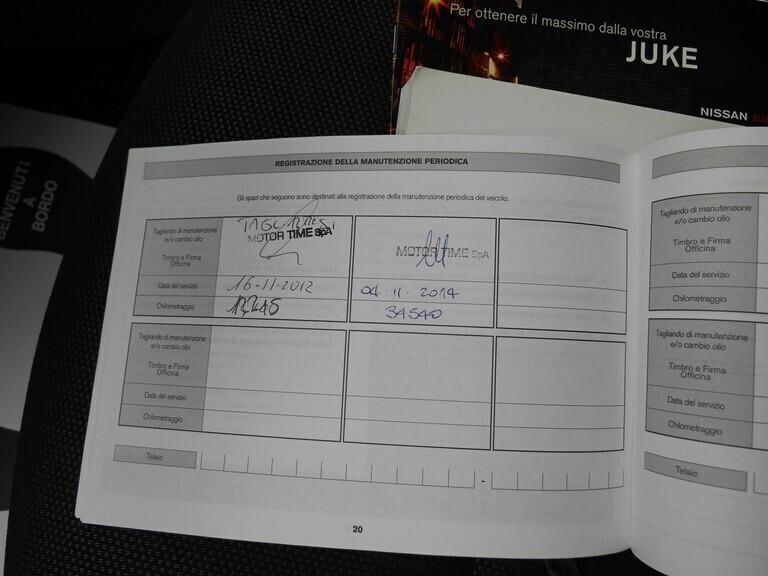 Per ottenere il massimo dalla vostra
JUKE
NISSAN
BENVENUTI
A
BORDO
REGISTRAZIONE DELLA MANUTENZIONE PERIODICA
Gli spazi che seguono sono destinati alla registrazione della manutenzione periodica del veicolo.
Tagliando di manutenzione
e/o cambio olio
Timbro e Firma
Officina
MOTOR TIME SpA
MOTOR TIME SpA
Data del servizio
16-11-2012
04-11-2014
Chilometraggio
34540
Tagliando di manutenzione
e/o cambio olio
Timbro e Firma
Officina
Data del servizio
Chilometraggio
Telaio
-
20
Tagliando di manutenzione
e/o cambio olio
Timbro e Firma
Officina
Data del servizio
Chilometraggio
Tagliando di manutenzione
e/o cambio olio
Timbro e Firma
Officina
Data del servizio
Chilometraggio
Telaio